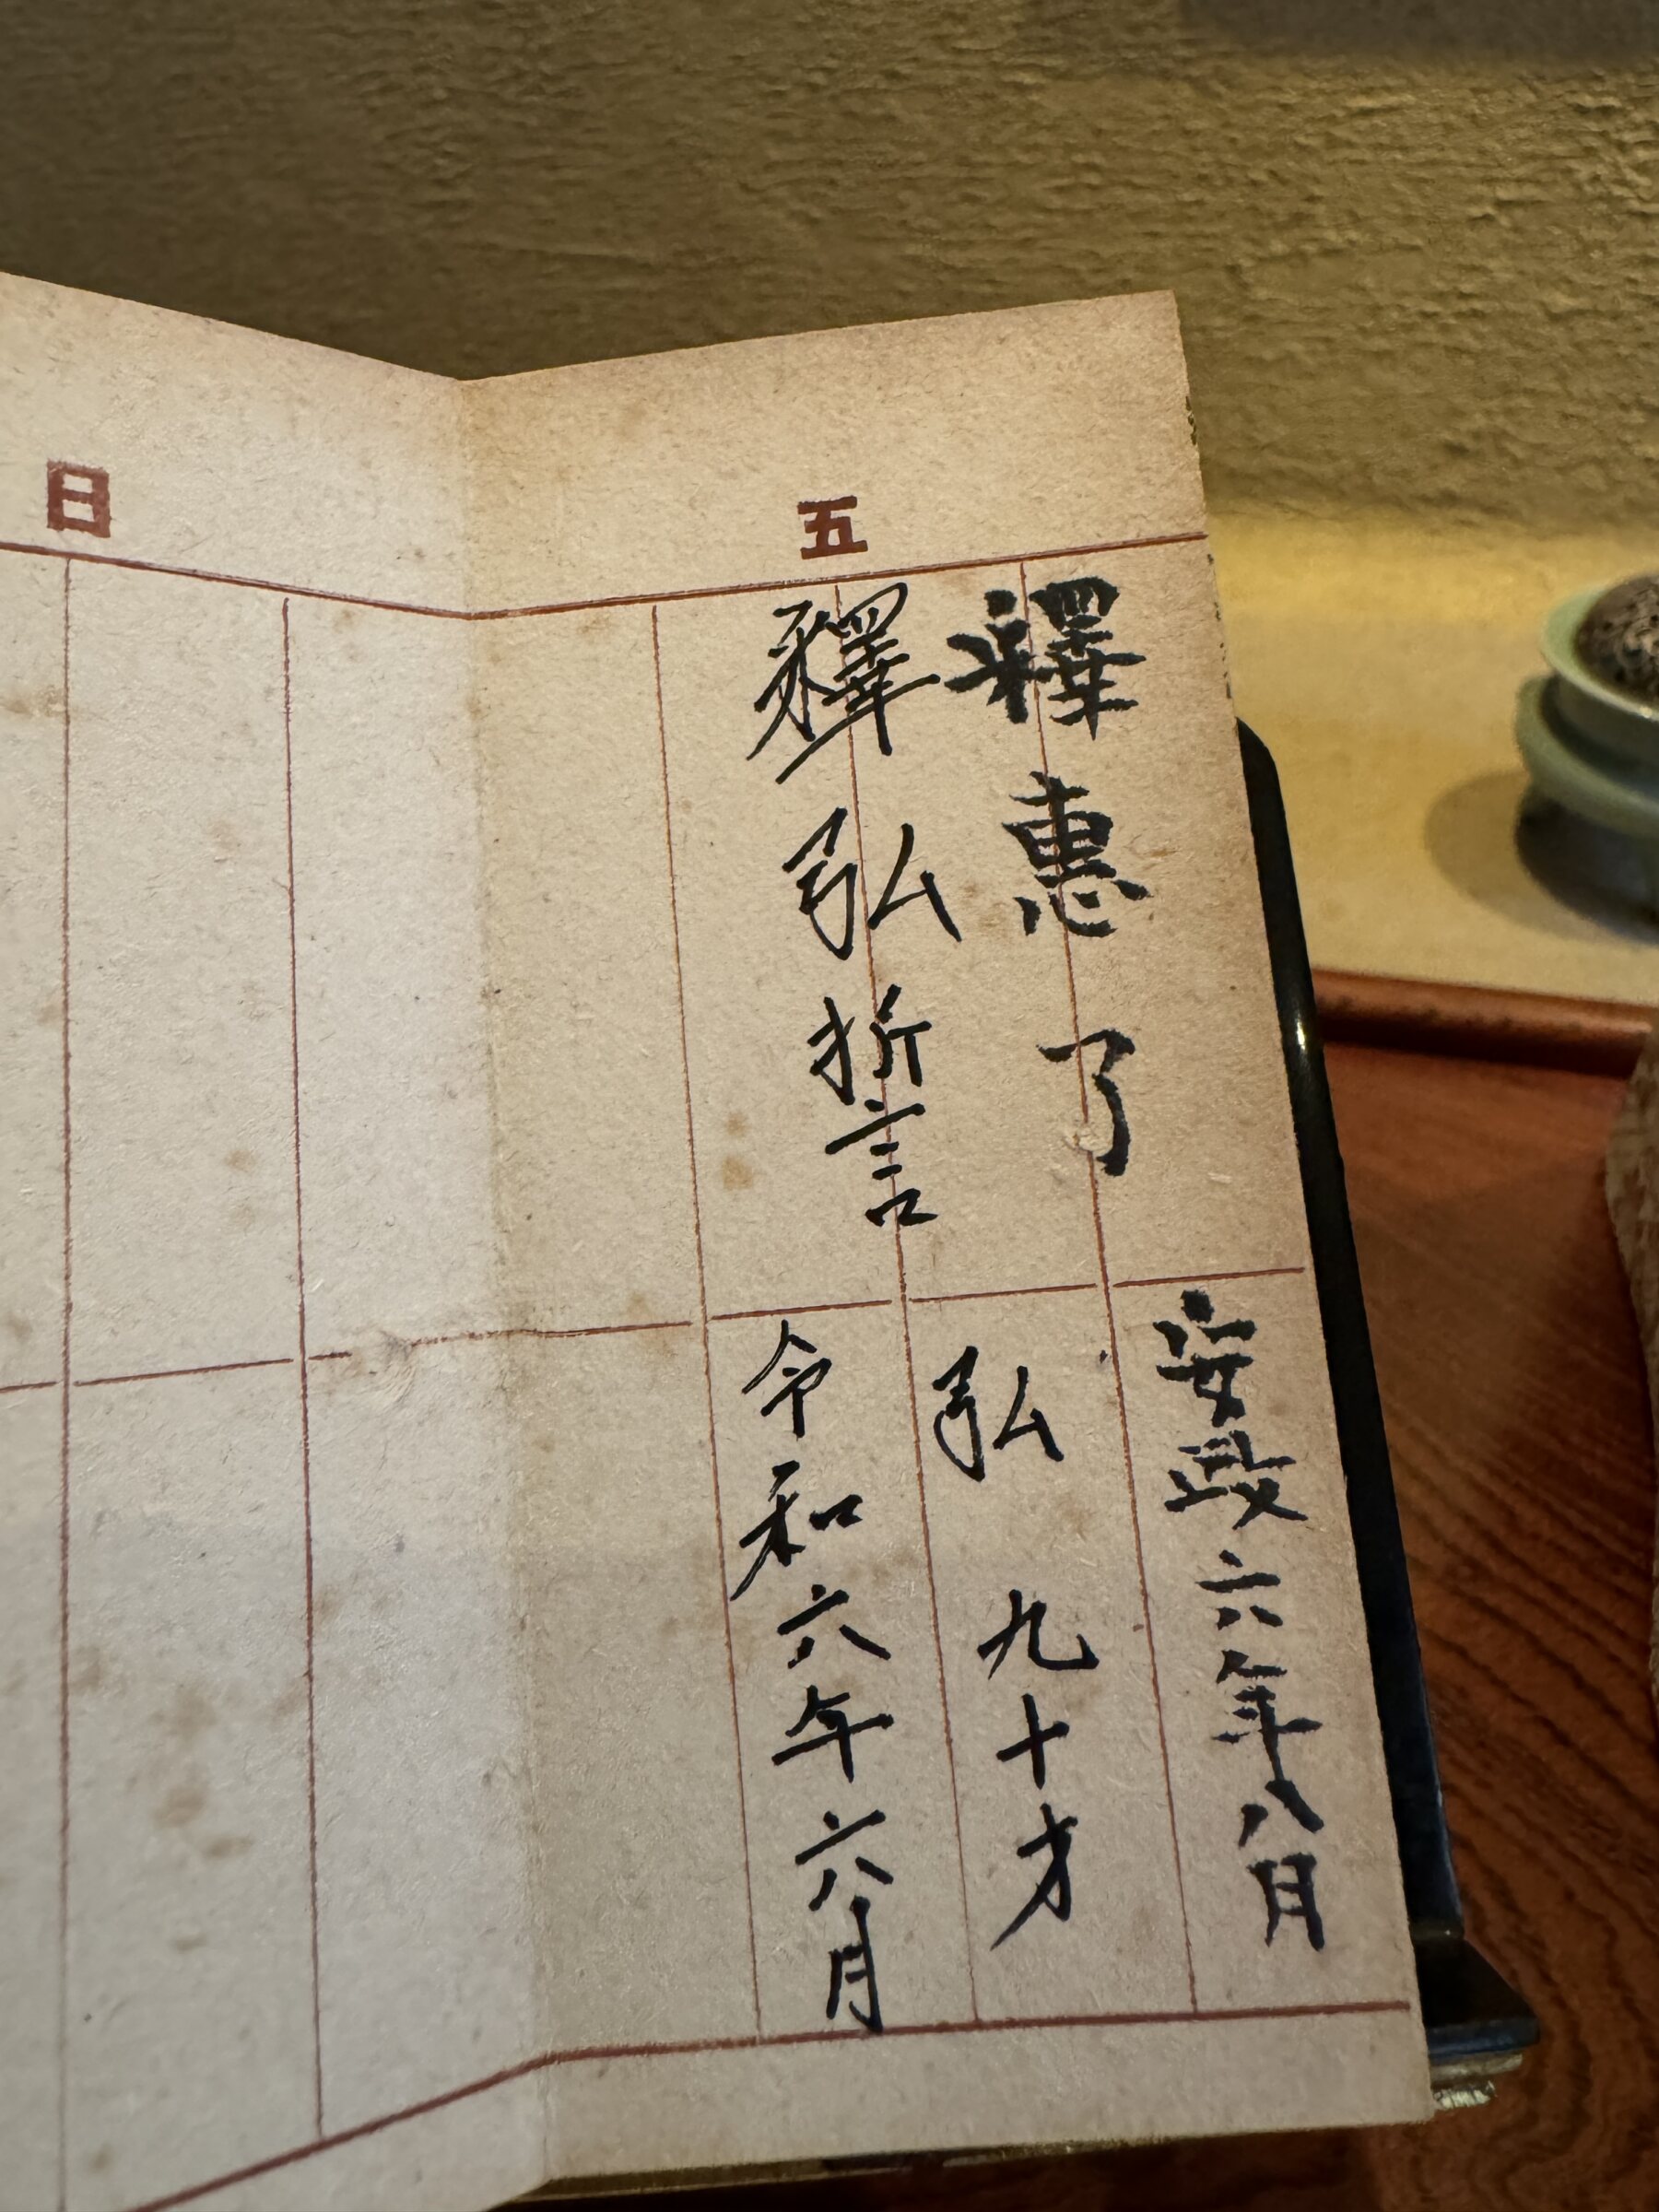 五
釋惠了
安政六年八月
釋弘誓
弘 九十才
令和六年六月
日